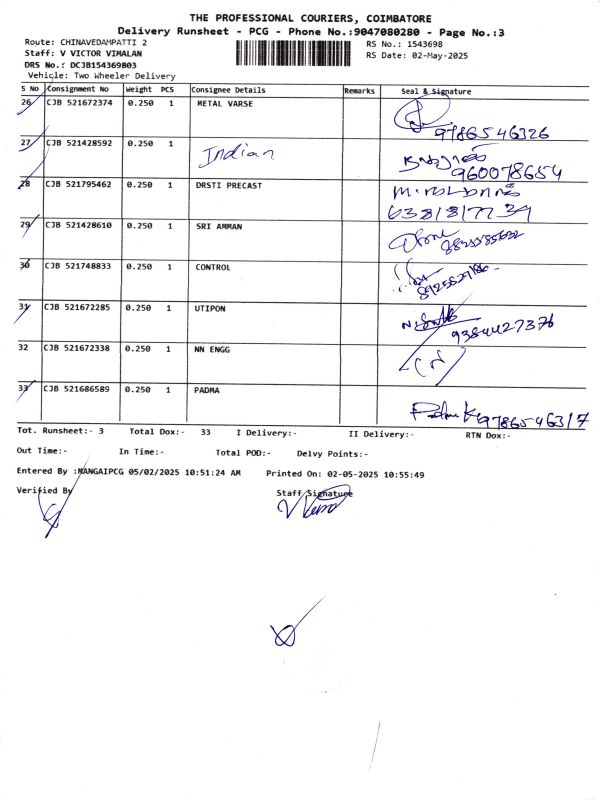 THE PROFESSIONAL COURIERS, COIMBATORE
Delivery Runsheet - PCG - Phone No.:9047080280 - Page No.:3
Route: CHINAVEDAMPATTI 2
RS No.: 1543698
Staff: V VICTOR VIMALAN
RS Date: 02-May-2025
DRS No.: DCJB154369803
Vehicle: Two Wheeler Delivery
S No Consignment No Weight PCS Consignee Details Remarks Seal & Signature
26 CJB 521672374 0.250 1 METAL VARSE
9786546326
27 CJB 521428592 0.250 1 Indian
960078654
28 CJB 521795462 0.250 1 DRSTI PRECAST
29 CJB 521428610 0.250 1 SRI AMMAN
30 CJB 521748833 0.250 1 CONTROL
31 CJB 521672285 0.250 1 UTIPON
9384427376
32 CJB 521672338 0.250 1 NN ENGG
33 CJB 521686589 0.250 1 PADMA
9786546317
Tot. Runsheet:- 3 Total Dox:- 33 I Delivery:- II Delivery:- RTN Dox:-
Out Time:- In Time:- Total POD:- Delvy Points:-
Entered By :MANGAIPCG 05/02/2025 10:51:24 AM Printed On: 02-05-2025 10:55:49
Verified By Staff Signature